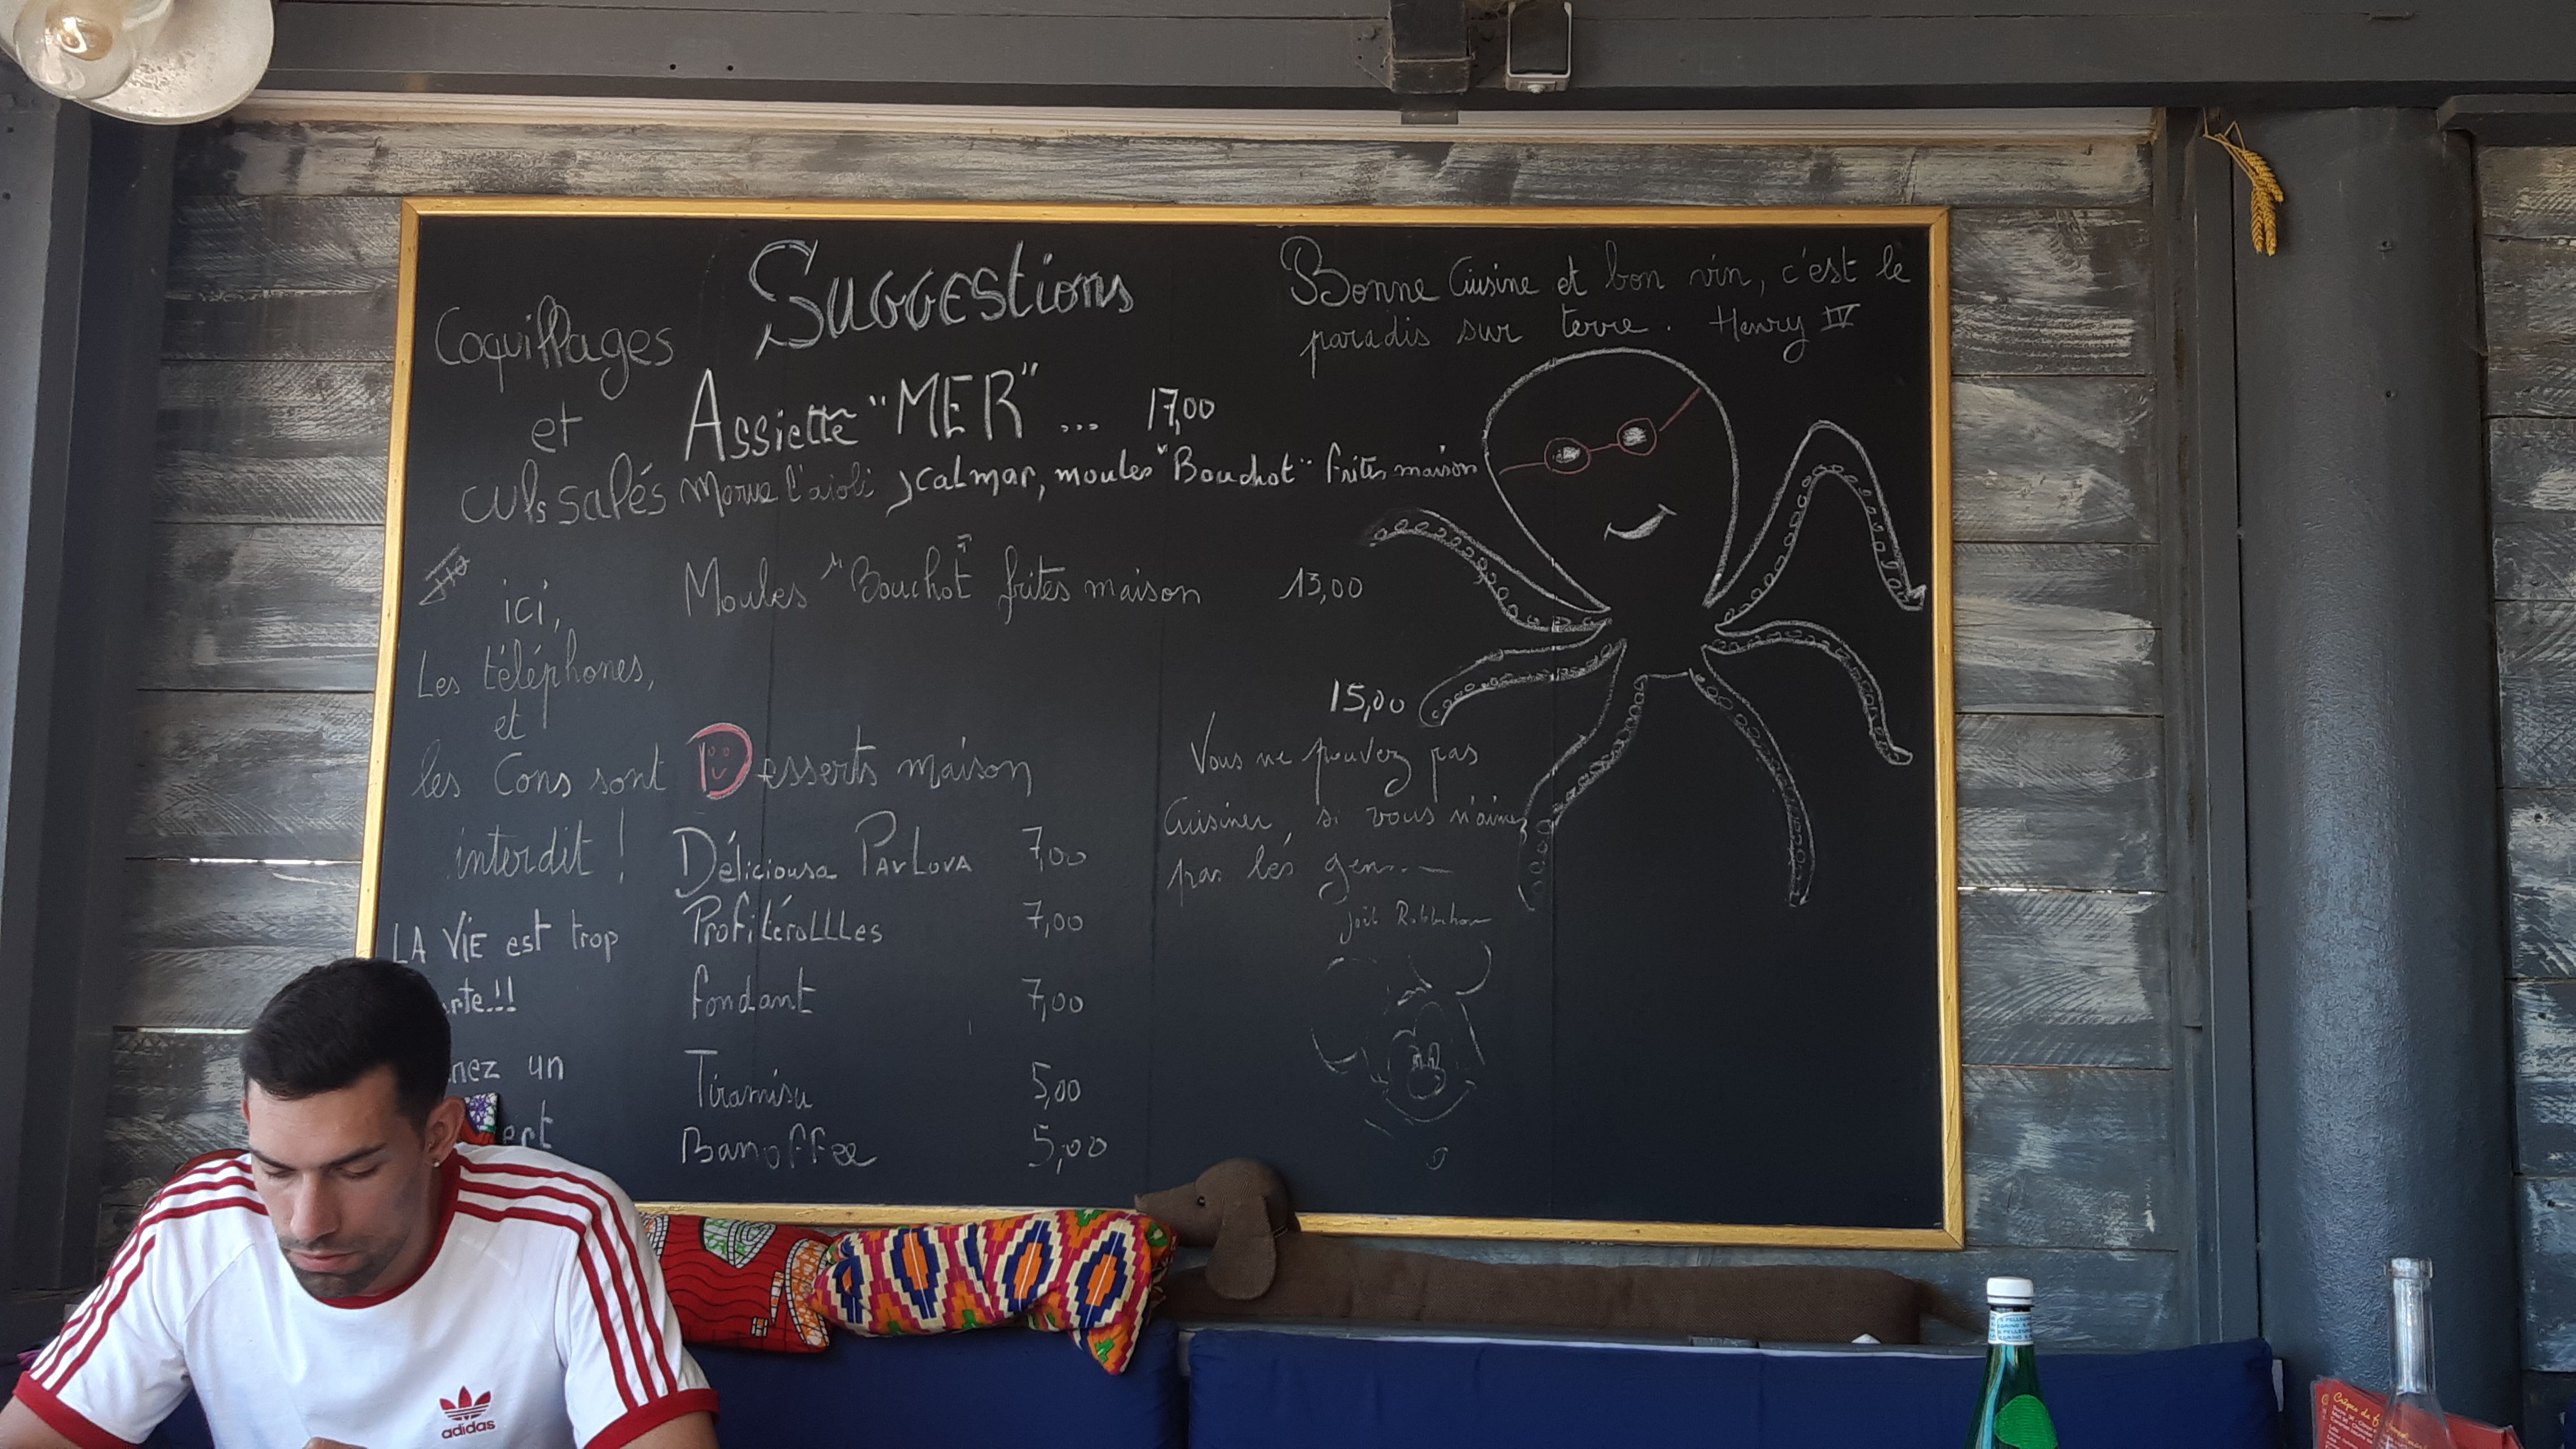 Suggestions
Bonne Cuisine et bon vin, c'est le
paradis sur terre. Henry IV
Coquillages
et
culs salés
Assiette "MER" ... 17,00
Morue l'aioli, calmar, moules "Bouchot" frites maison
Moules "Bouchot" frites maison 13,00
15,00
ici,
Les téléphones,
et
les Cons sont
interdit !
LA VIE est trop
rte!!
nez un
ert
Desserts maison
Déliciousa PAVLOVA 7,00
ProfitéroLLLes 7,00
fondant 7,00
Tiramisu 5,00
Banoffee 5,00
Vous ne pouvez pas
Cuisiner, si vous n'aimez
pas les gens
Joël
adidas